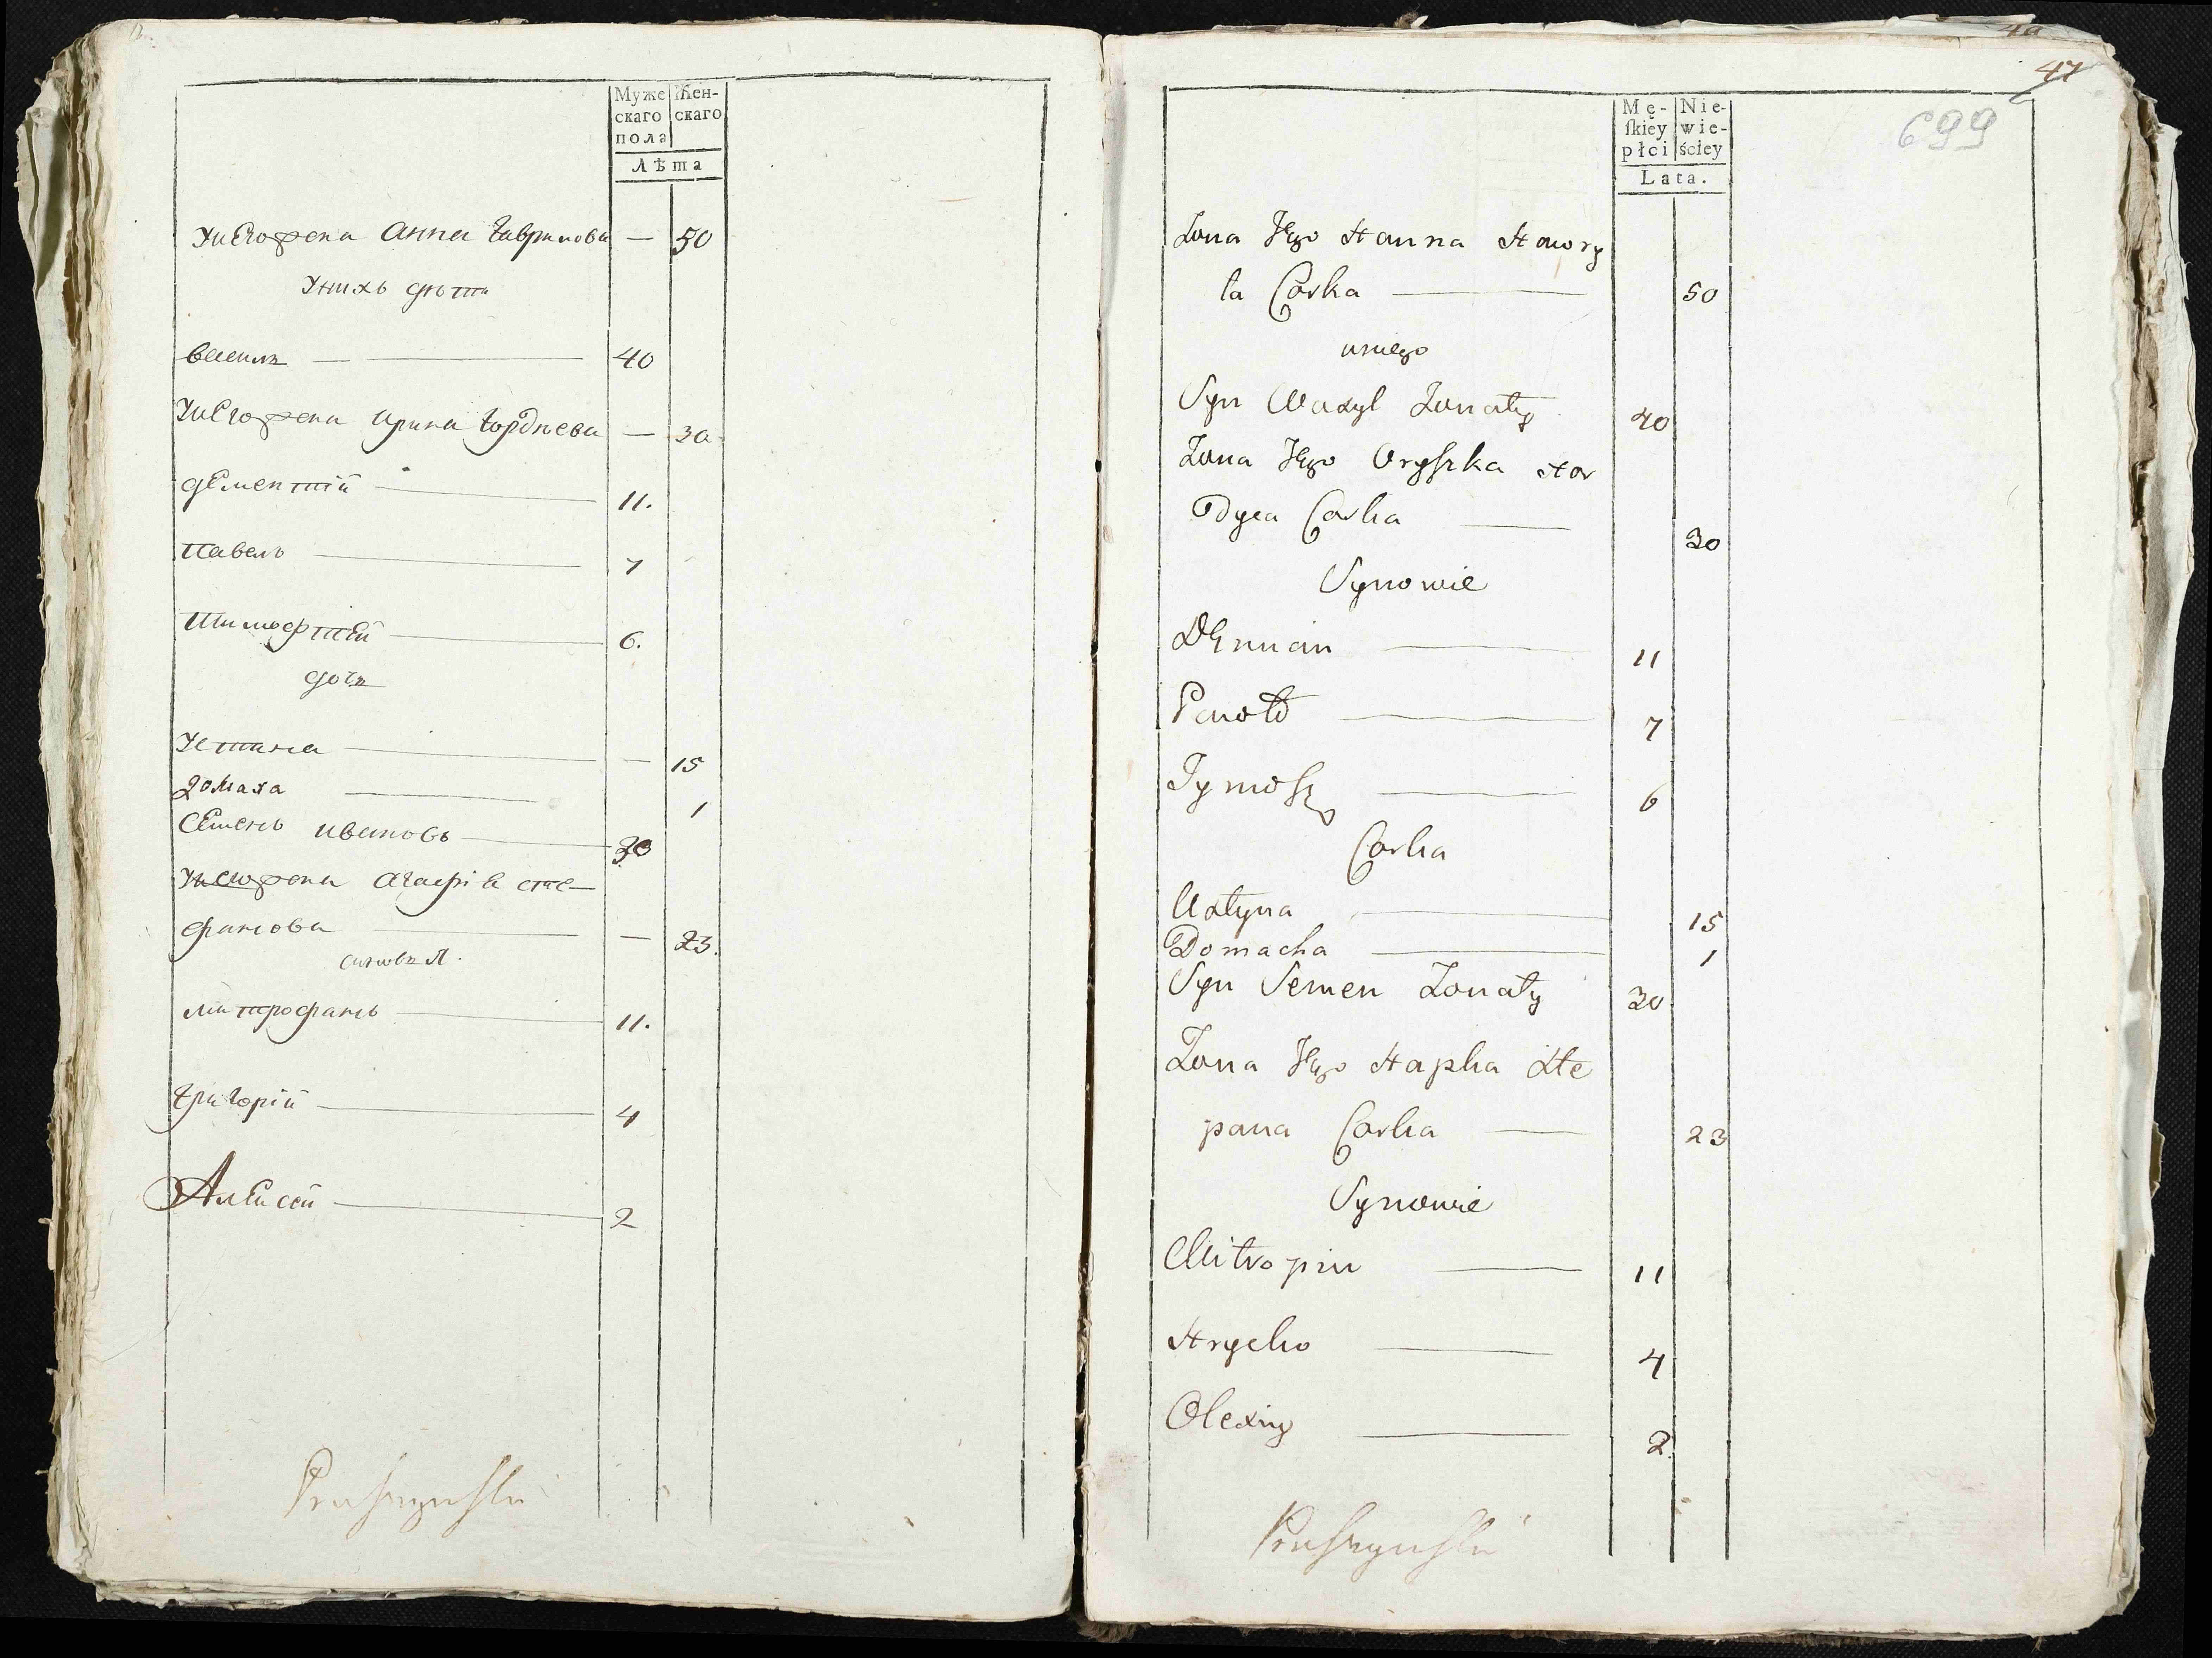 Муже
скаго
пола
Жен-
скаго
Лѣта
Унего жена анна гаврилова — 50
Унихъ дѣти
василь — 40
Унего жена ирина гордѣева — 30
дементій — 11.
павелъ — 7
тимофтей — 6.
дочь
Устина — 15
Домаха — 1
Семенъ ивановъ — 30
Унего жена агафія сте-
фанова — 23.
сыновья.
митрофанъ — 11.
григорій — 4
Алексей — 2
47
699
Mę-
ſkiey
płci
Nie-
wie-
ściey
Lata.
Żona Jego Hanna Hawry
ła Corka — 50
uniego
Syn Wasyl Żonaty 40
Żona Jego Oryszka Hor
dyea Corka — 30
Synowie
Demian — 11
Pawło — 7
Tymosz — 6
Corka
Ustyna — 15
Domacha — 1
Syn Semen Żonaty 30
Żona Jego Hapka Ste
pana Corka — 23
Synowie
Mitropin — 11
Hrycko — 4
Olexiy — 2